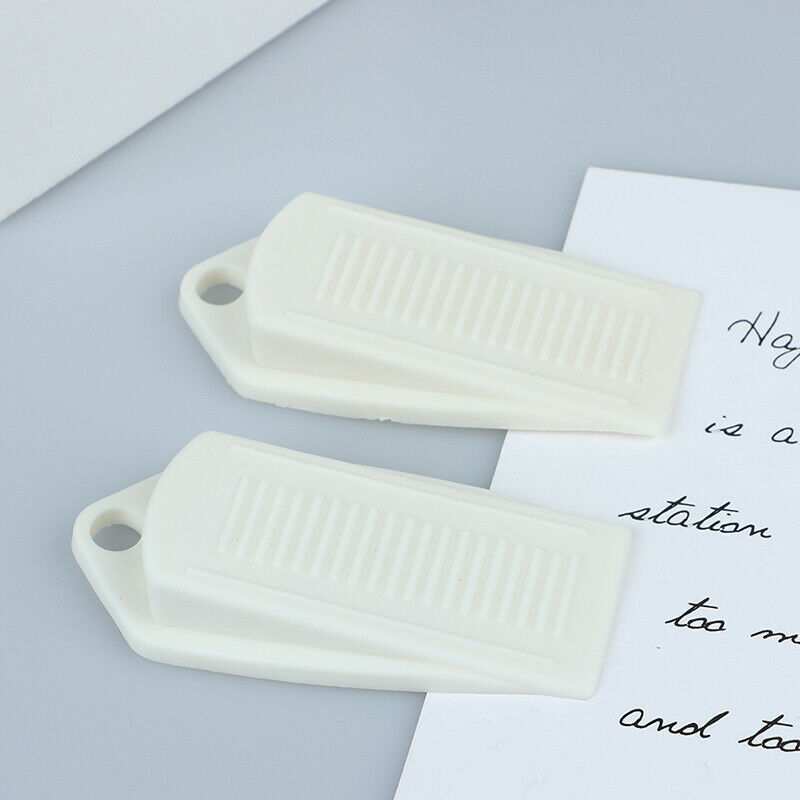 is a
station
too
and too